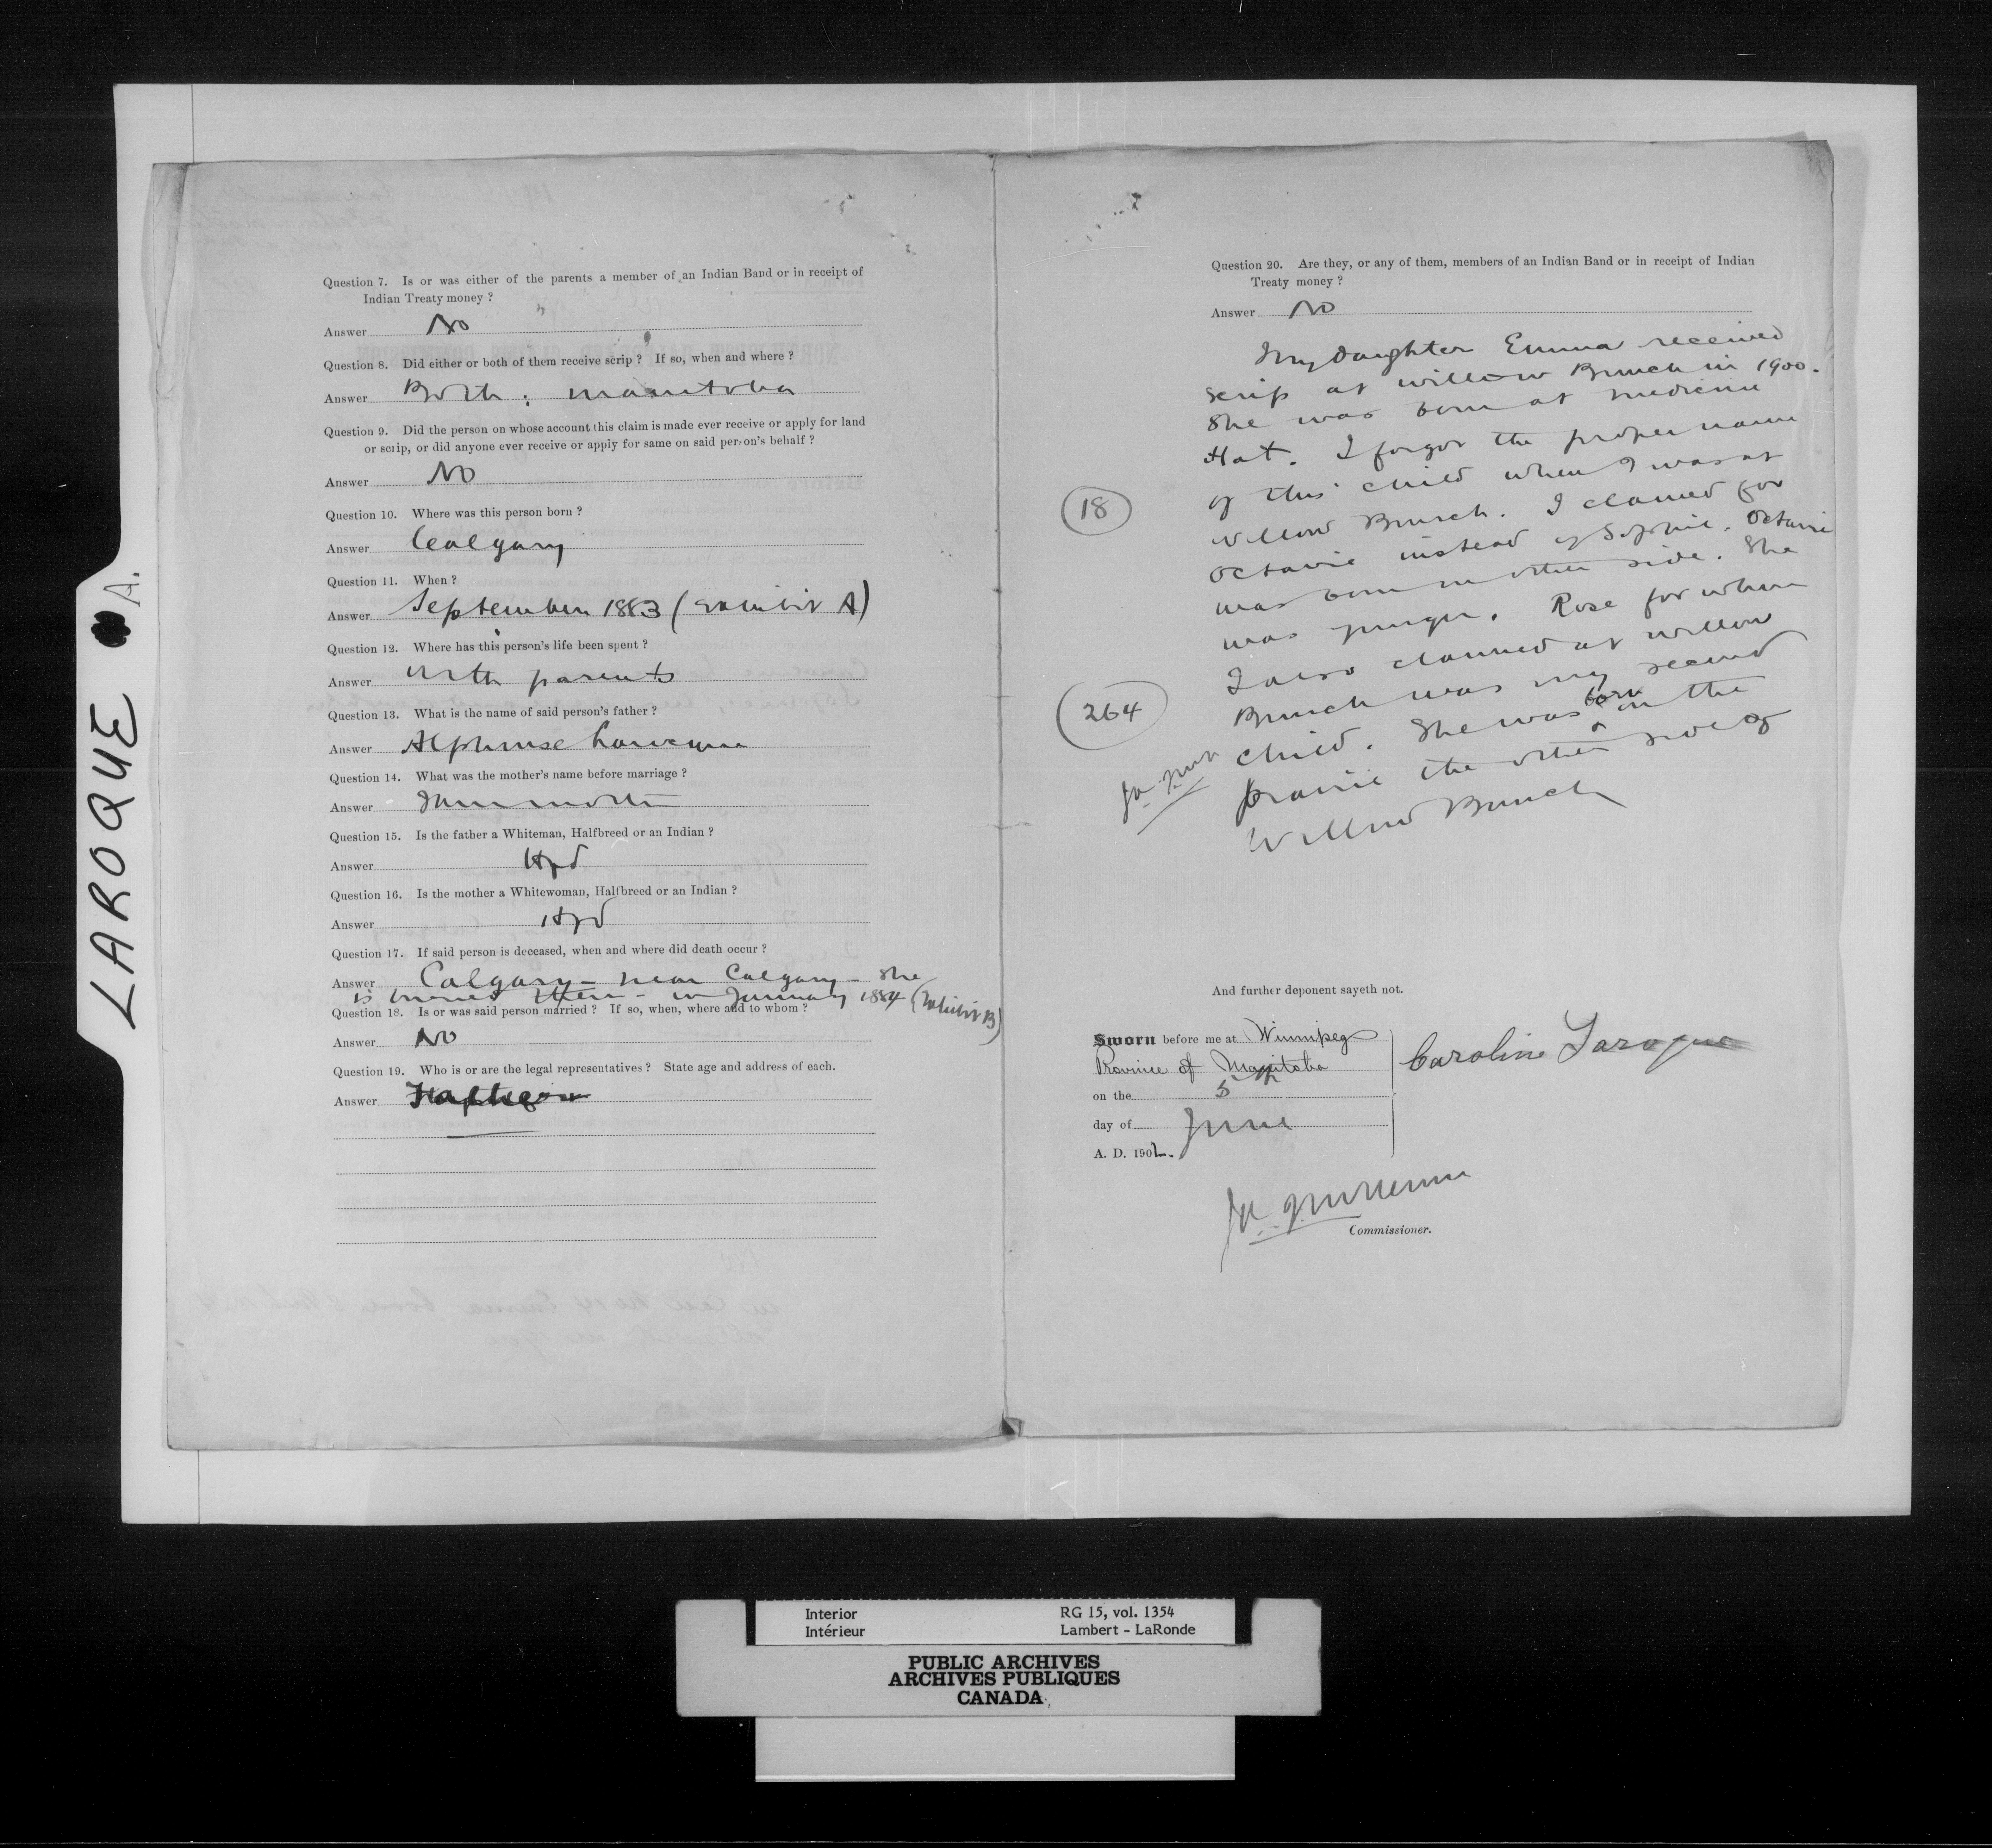 LAROQUE A.
Question 7. Is or was either of the parents a member of an Indian Band or in receipt of
Indian Treaty money ?
Answer No
Question 8. Did either or both of them receive scrip ? If so, when and where ?
Answer Both; Manitoba
Question 9. Did the person on whose account this claim is made ever receive or apply for land
or scrip, or did anyone ever receive or apply for same on said person's behalf ?
Answer No
Question 10. Where was this person born ?
Answer Calgary
Question 11. When ?
Answer September 1883 (Exhibit A)
Question 12. Where has this person's life been spent ?
Answer With parents
Question 13. What is the name of said person's father ?
Answer Alphonse Larocque
Question 14. What was the mother's name before marriage ?
Answer
Question 15. Is the father a Whiteman, Halfbreed or an Indian ?
Answer Hbd
Question 16. Is the mother a Whitewoman, Halfbreed or an Indian ?
Answer Hbd
Question 17. If said person is deceased, when and where did death occur ?
Answer Calgary - near Calgary - She
is buried there - in January 1884 (Exhibit B)
Question 18. Is or was said person married ? If so, when, where and to whom ?
Answer No
Question 19. Who is or are the legal representatives ? State age and address of each.
Answer
Question 20. Are they, or any of them, members of an Indian Band or in receipt of Indian
Treaty money ?
Answer No
My daughter Emma received
scrip at Willow Bunch in 1900.
She was born at Medicine
Hat. I forgot the proper name
of this child when I was at
18
Willow Bunch. I claimed for
Octavie instead of Sophie. Octavie
was born on other side. She
was younger. Rose for whom
I also claimed at Willow
264
Bunch was my second
child. She was born on the
prairie the other side of
Willow Bunch
And further deponent sayeth not.
Sworn before me at Winnipeg
Province of Manitoba
on the 5th
day of June
A. D. 1902.
Caroline Laroque
Commissioner.
Interior RG 15, vol. 1354
Intérieur Lambert - LaRonde
PUBLIC ARCHIVES
ARCHIVES PUBLIQUES
CANADA